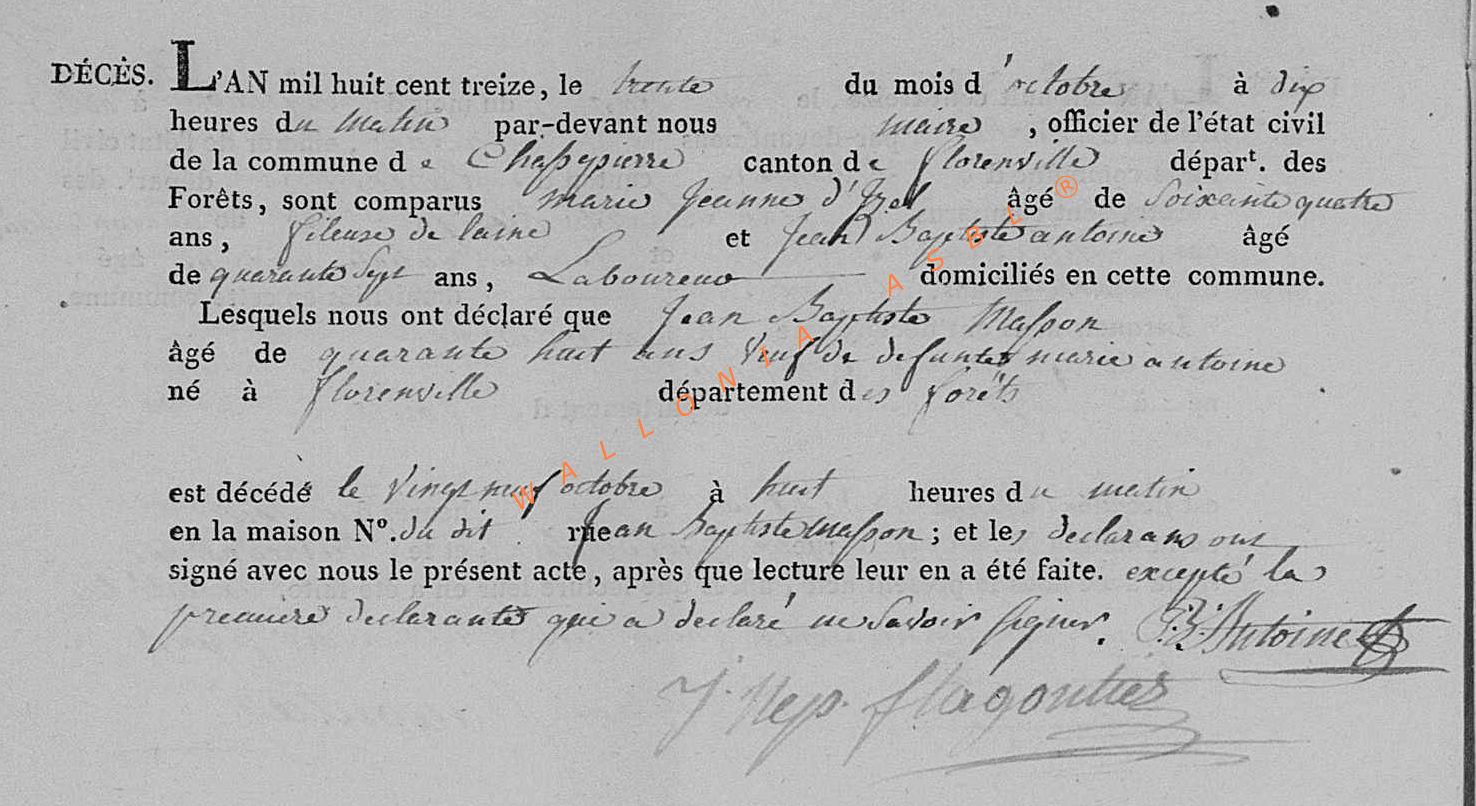 DÉCÈS. L'AN mil huit cent treize, le trente du mois d'octobre à dix
heures du matin par-devant nous maire, officier de l'état civil
de la commune de Chassepierre canton de florenville départ. des
Forêts, sont comparus marie jeanne d'Izel âgé de soixante quatre
ans, fileuse de laine et jean Baptiste antoine âgé
de quarante sept ans, Laboureur domiciliés en cette commune.
Lesquels nous ont déclaré que jean Baptiste Masson
âgé de quarante huit ans veuf de defunte marie antoine
né à florenville département des forêts
est décédé le vingt neuf octobre à huit heures du matin
en la maison N°. du dit jean Baptiste masson ; et les declarans ont
signé avec nous le présent acte, après que lecture leur en a été faite. excepté la
premiere declarante qui a declaré ne savoir signer. J:B: Antoine
J. Nep. flagontier
WALLONIA ASBL®